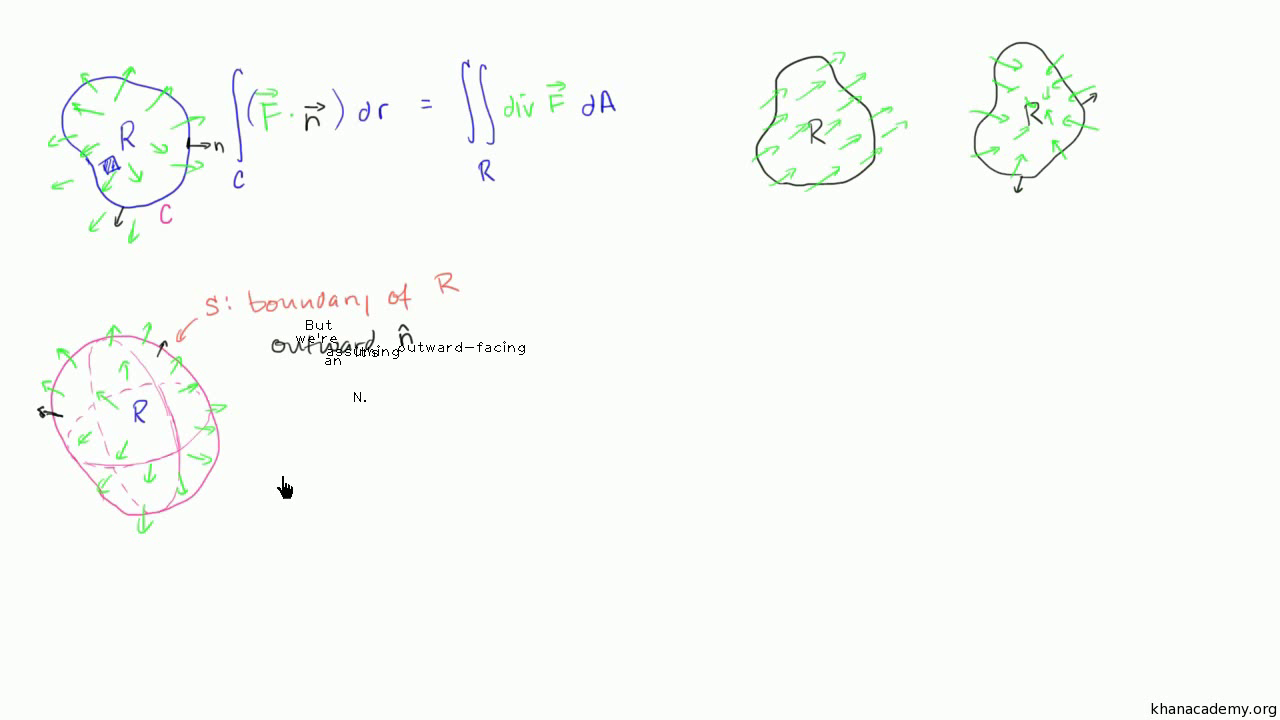 R
n
C
∫ (F⃗ · n⃗) dr = ∬ div F⃗ dA
C
R
R
R
S: boundary of R
outward n̂
But
we're
assuming
outward-facing
an
N.
R
khanacademy.org